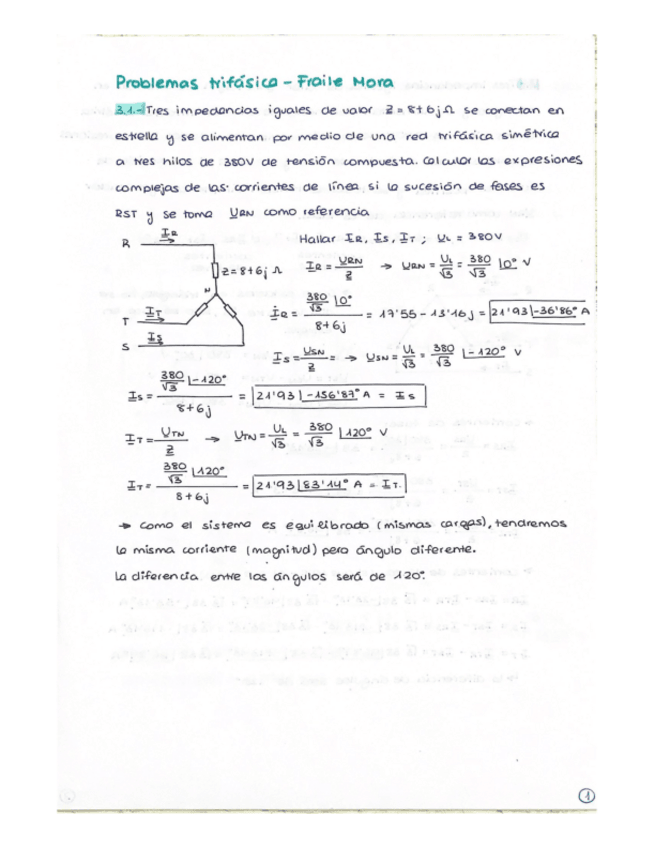 Problemas trifásica - Fraile Mora
3.1.- Tres impedancias iguales de valor Z = 8+6j Ω se conectan en
estrella y se alimentan por medio de una red trifásica simétrica
a tres hilos de 380V de tensión compuesta. Calcular las expresiones
complejas de las corrientes de línea si la sucesión de fases es
RST y se toma URN como referencia
Hallar IR, IS, IT ; UL = 380V
R IR
Z = 8+6j Ω
N
T IT
S IS
IR = URN/Z → URN = UL/√3 = 380/√3 |0° V
IR = 380/√3 |0° / 8+6j = 17'55 - 13'16j = 21'93 |-36'86° A
IS = USN/Z = → USN = UL/√3 = 380/√3 |-120° V
IS = 380/√3 |-120° / 8+6j = 21'93 |-156'87° A = IS
IT = UTN/Z → UTN = UL/√3 = 380/√3 |120° V
IT = 380/√3 |120° / 8+6j = 21'93 |83'14° A = IT.
→ Como el sistema es equilibrado (mismas cargas), tendremos
la misma corriente (magnitud) pero ángulo diferente.
La diferencia entre los ángulos será de 120°.
1